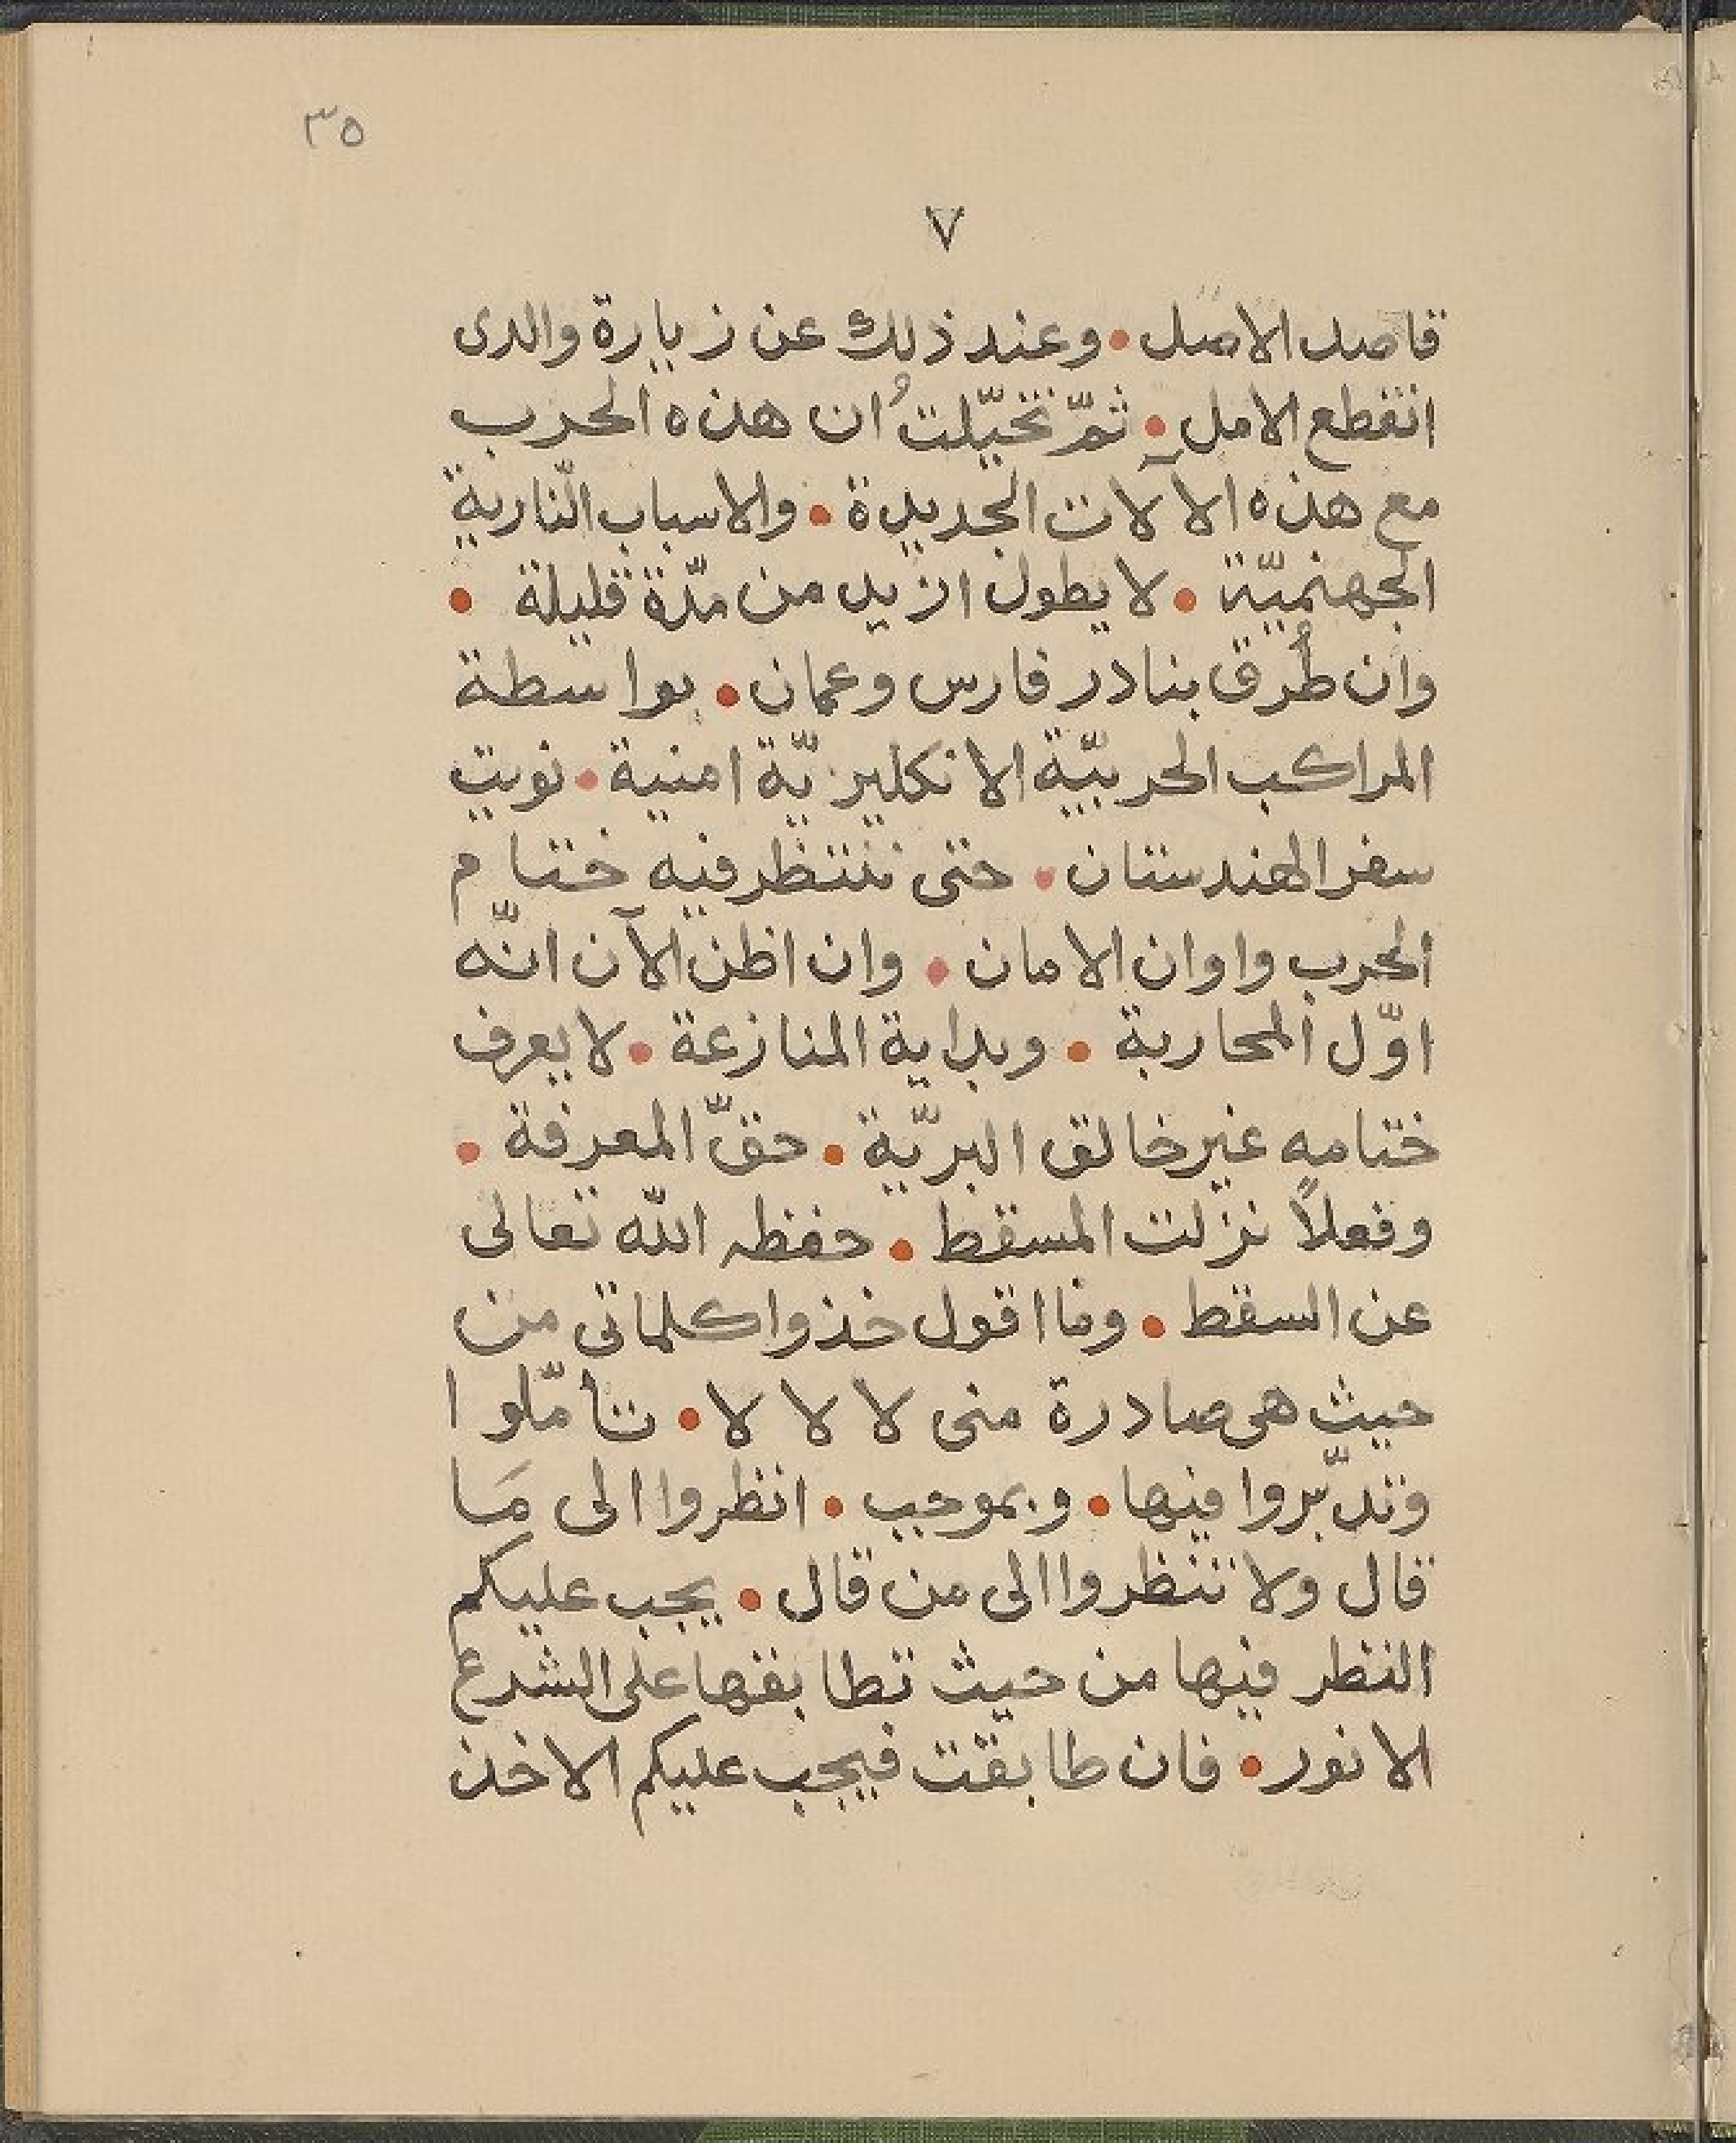 ٣٥
٧
قاصد الاصل • وعند ذلك عن زيارة والدى
انقطع الامل • ثمّ تخيّلتُ ان هذه الحرب
مع هذه الآلات الجديدة • والاسباب النّارية
الجهنميّة • لا يطول ازيد من مدّة قليلة •
وان طُرق بنادر فارس وعمان • بواسطة
المراكب الحربيّة الانكليزيّة امنية • نويت
سفر الهندستان • حتى ننتظر فيه ختام
الحرب واوان الامان • وان اظن الآن انّه
اوّل المحاربة • وبداية المنازعة • لا يعرف
ختامه غير خالق البريّة • حقّ المعرفة •
وفعلاً نزلت المسقط • حفظه الله تعالى
عن السقط • وما اقول خذوا كلماتى من
حيث هى صادرة منى لا لا لا • تأمّلوا
وتدبّروا فيها • وبموجب • انظروا الى مَا
قال ولا تنظروا الى من قال • يجب عليكم
النظر فيها من حيث تطابقها على الشرع
الانور • فان طابقت فيجب عليكم الاخذ